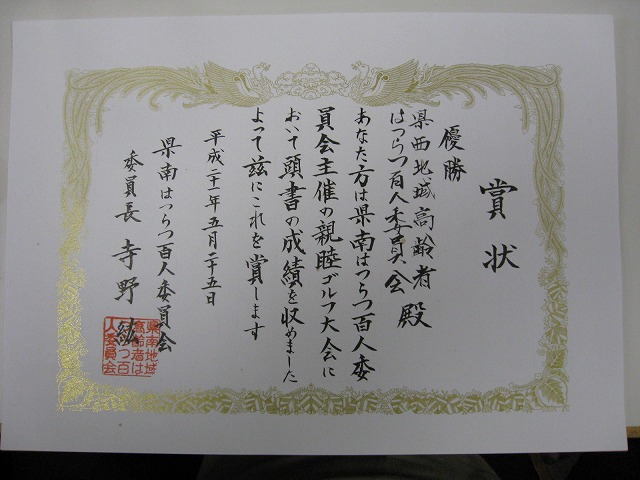 賞状
優勝
県西地域高齢者
はつらつ百人委員会 殿
あなた方は県南はつらつ百人委
員会主催の親睦ゴルフ大会に
おいて頭書の成績を収めました
よって茲にこれを賞します
平成二十一年五月二十五日
県南はつらつ百人委員会
委員長 寺野
県南地域
高齢者は
つらつ百
人委員会